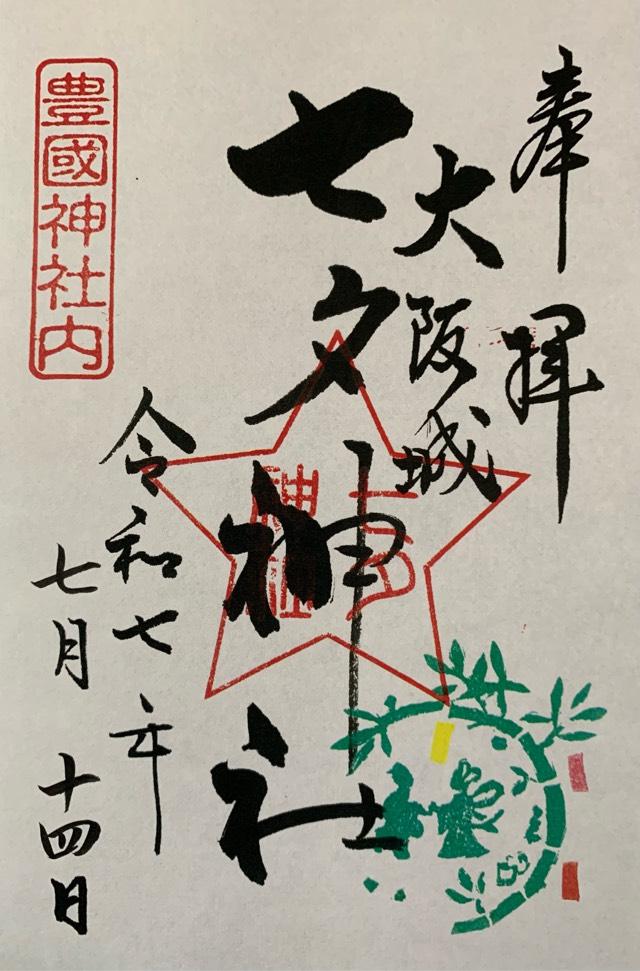 奉拝
大阪城
七夕神社
七夕
神社
令和七年
七月十四日
豊國神社内